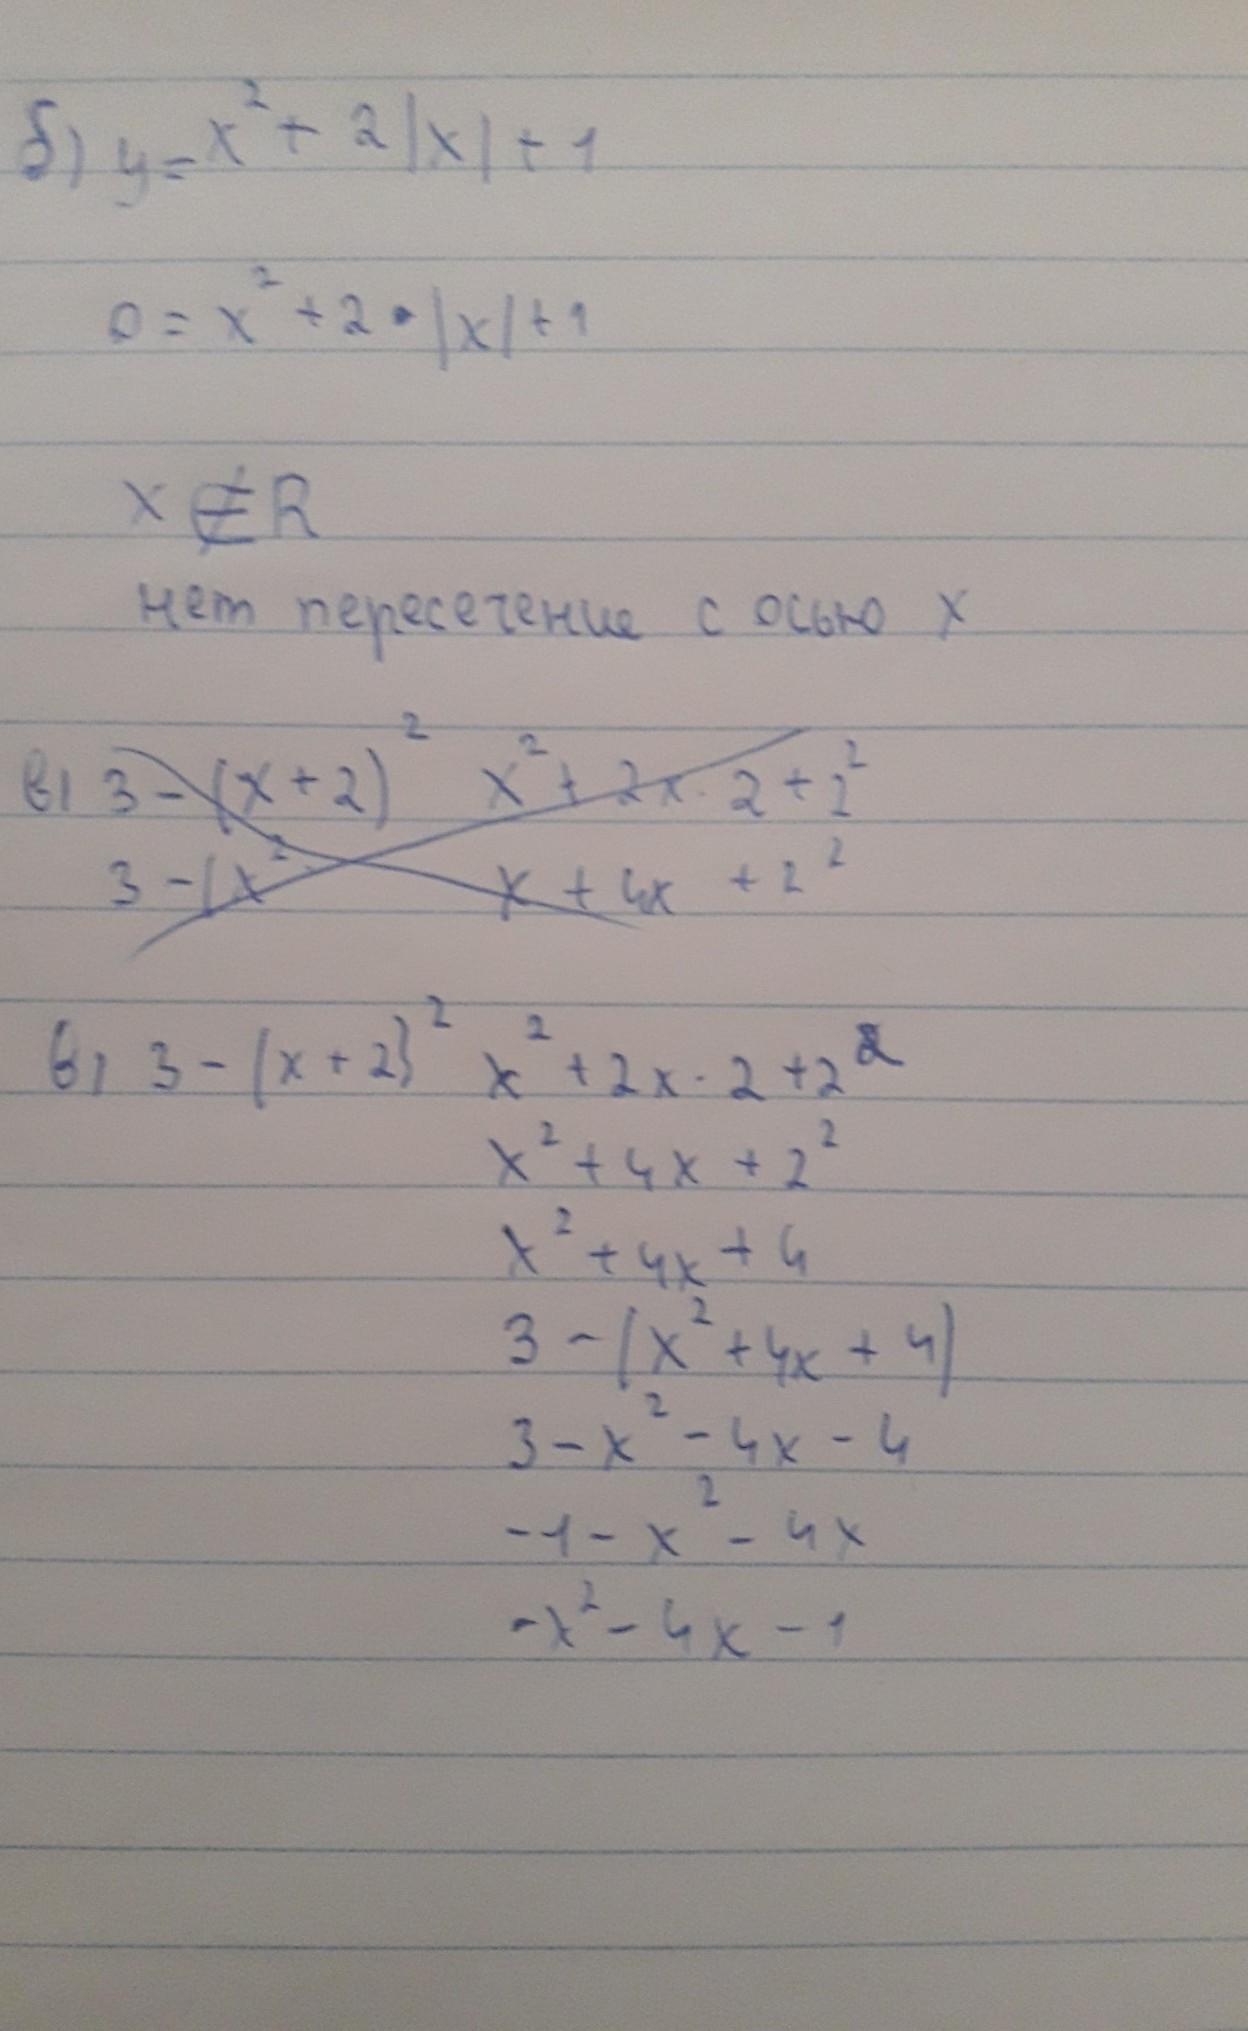 б) y = x² + 2|x| + 1
0 = x² + 2 • |x| + 1
x ∉ R
нет пересечение с осью x
в) 3 - (x + 2)² x² + 2x · 2 + 2²
3 - (x² x + 4x + 2²
в) 3 - (x + 2)² x² + 2x · 2 + 2²
x² + 4x + 2²
x² + 4x + 4
3 - (x² + 4x + 4)
3 - x² - 4x - 4
-1 - x² - 4x
-x² - 4x - 1